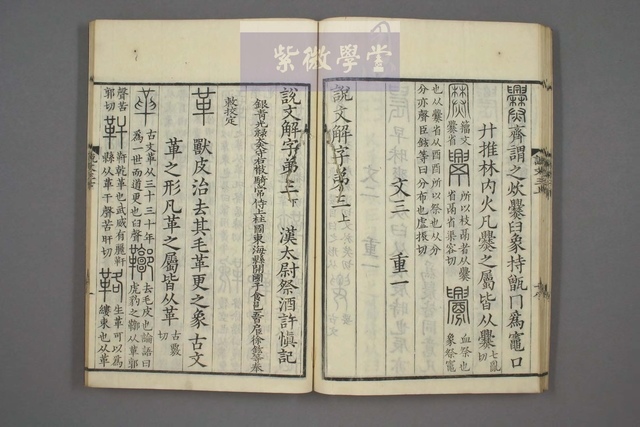 紫微學堂
齊謂之炊爨𦥑象持甑冂爲竈口
廾推林内火凡爨之屬皆从爨
七亂切
籒文爨省
所以枝鬲者从爨
省鬲省渠容切
血祭也
象祭竈
也从爨省从酉酉所以祭也从分
分亦聲臣鉉等曰分布也虛振切
文三 重一
說文解字弟三上
說文解字弟三下
漢太尉祭酒許愼記
敕校定
革 獸皮治去其毛革更之象古文
革之形凡革之屬皆从革
古覈切
古文革从三十三十年
爲一世而道更也𦥑聲
去毛皮也論語曰
虎豹之鞹从革郭
聲苦郭切
靬乾革也武威有麗靬
縣从革干聲苦旰切
生革可以爲
縷束也从革